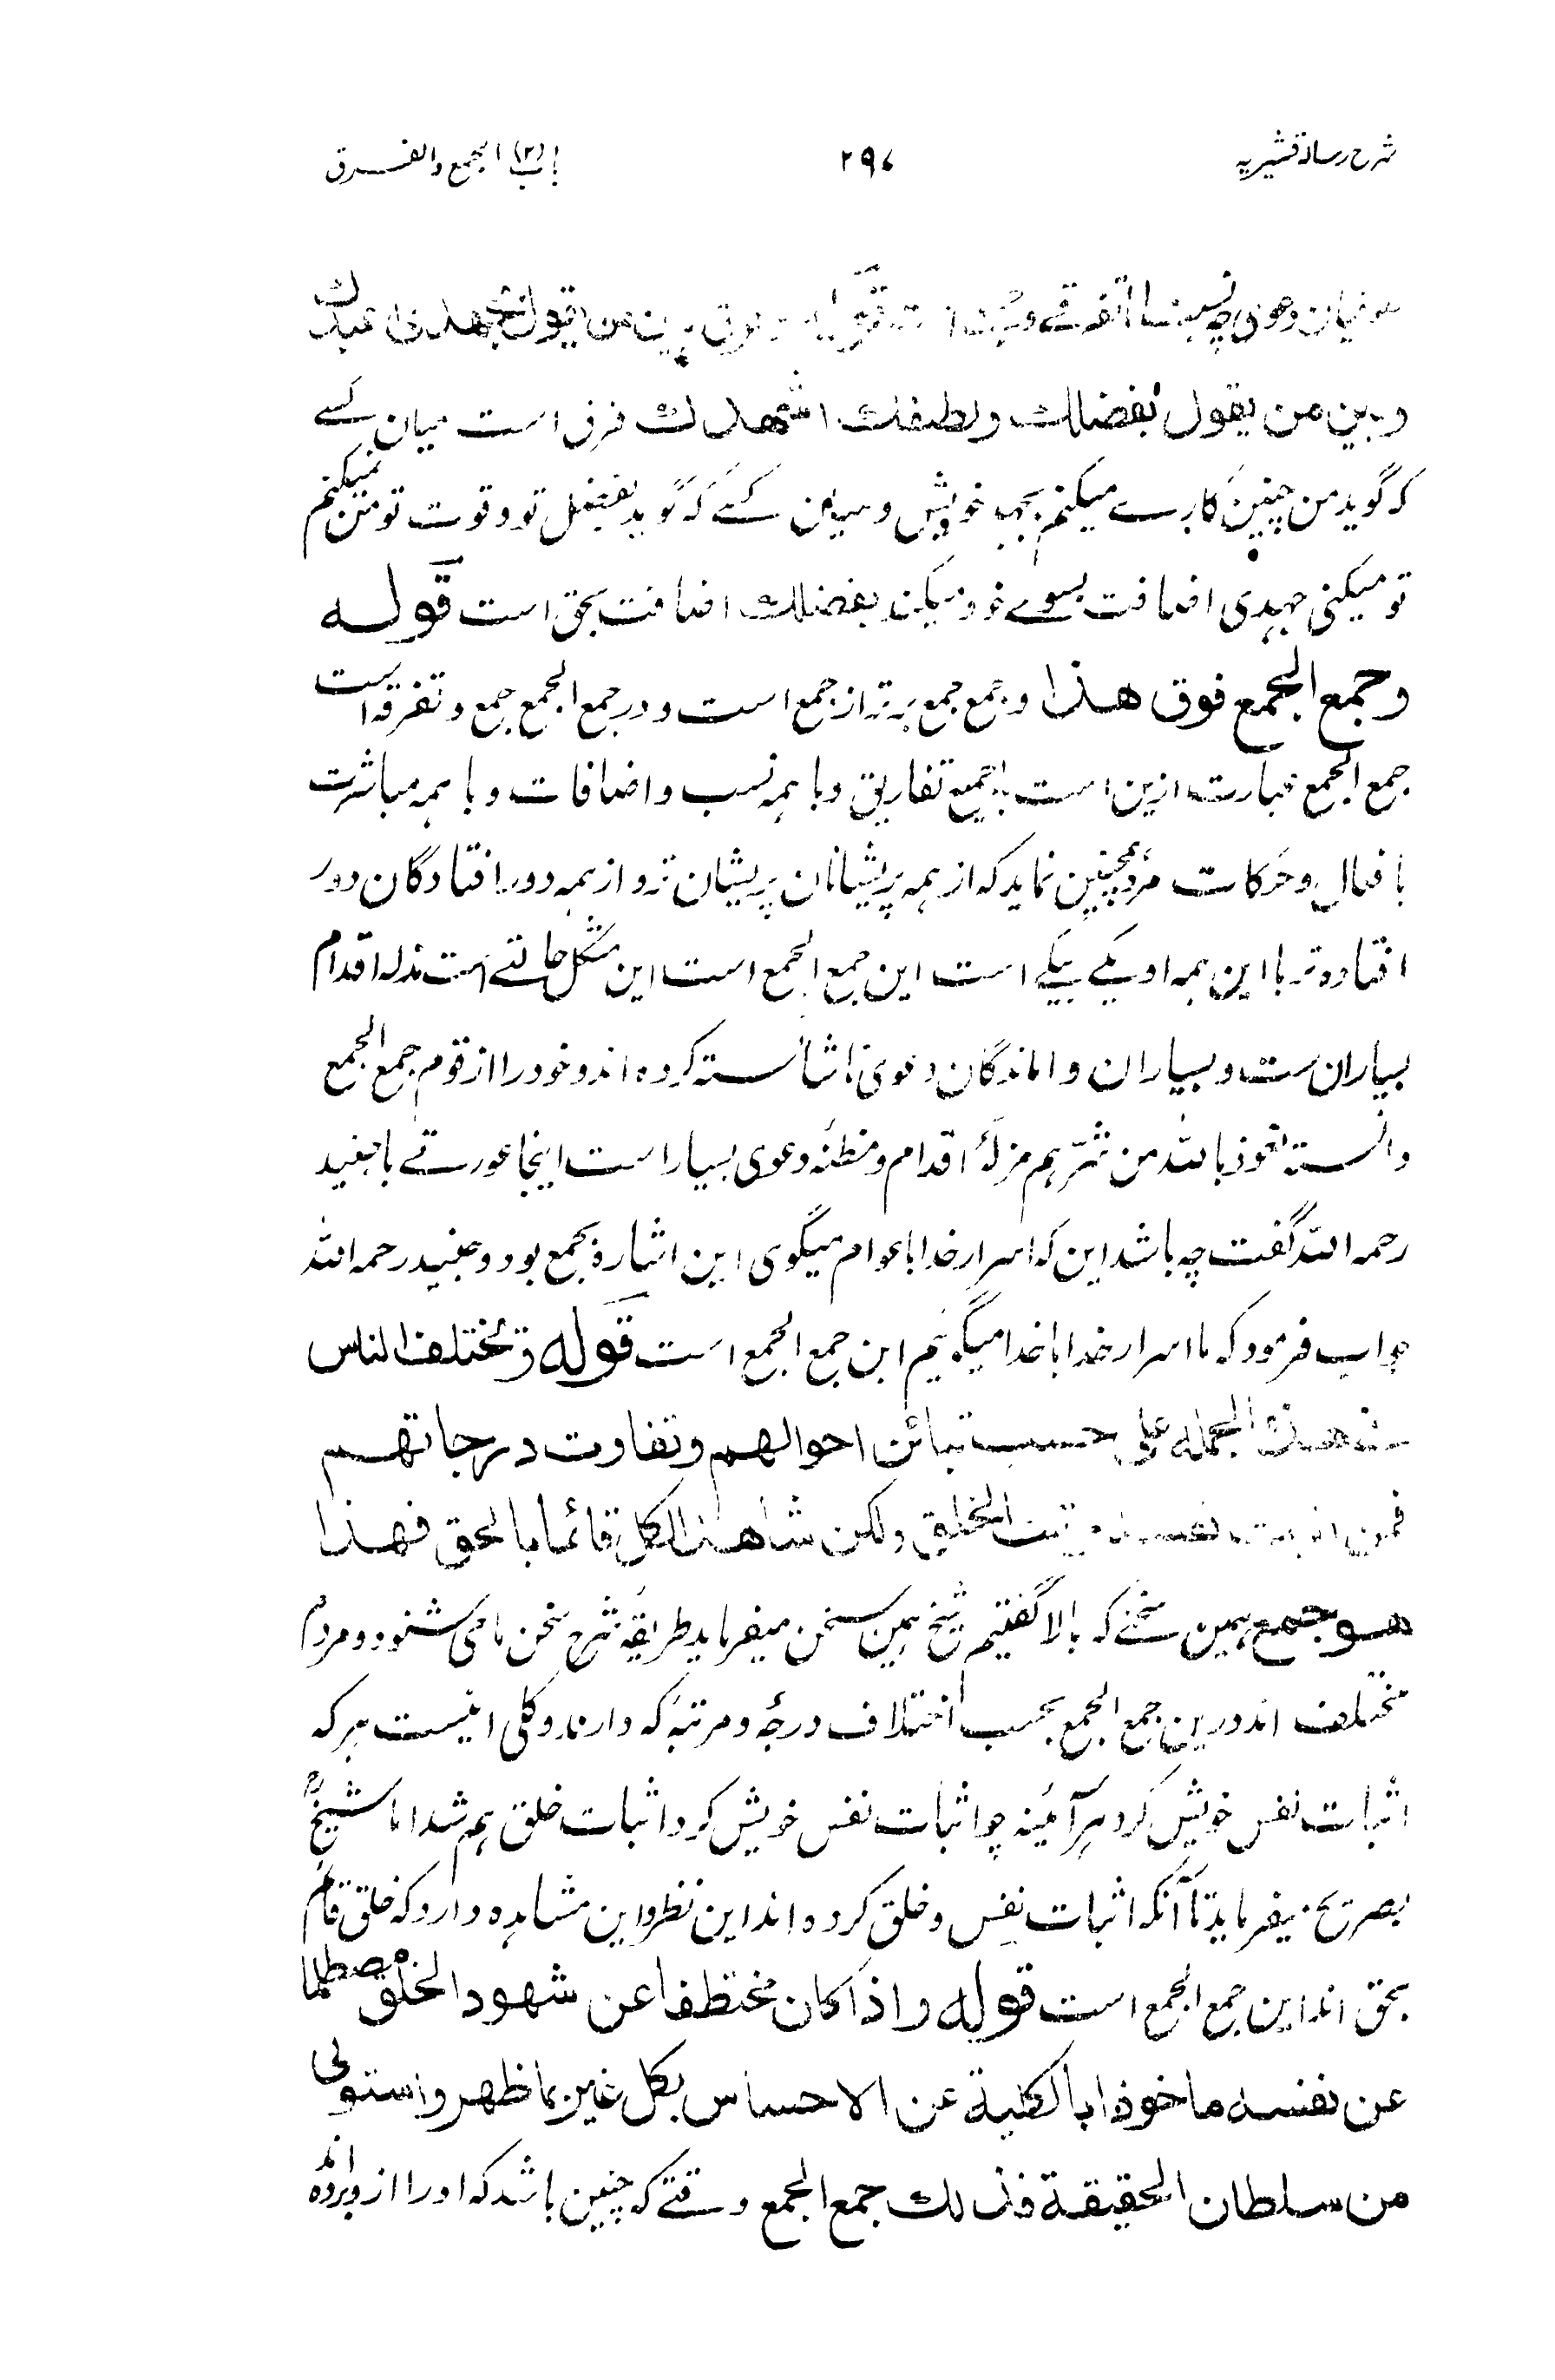 شرح رسالۀ قشیریه ۲۹۷ باب (۲) الجمع والفرق
قوله فرق بین من یقول بجهدی عبدتك
وبین من یقول بفضلك ولطفك اشهدك فرق است میان کسے
که گوید من چنین کارے میکنم بجهد خویش و میان کسے که گوید بفضل تو و قوت تو من نمیکنم
تو میکنی جهدی اضافت بسوے خود میکند بفضلك اضافت بحق است قوله
وجمع الجمع فوق هذا و جمع جمع برتر از جمع است و در جمع الجمع جمع و تفرقه است
جمع الجمع عبارت ازین است با جمیع تفاریق و با همه نسب و اضافات و با همه مباشرت
با فعال و حرکات مرد همچنین نماید که از همه پریشانان پریشان تر و از همه دور افتادگان دور
افتاده تر با این همه او یکے بیکے است این جمع الجمع است این مشکل حالتے است مذلۀ اقدام
بسیاران ست و بسیاران و اماندگان دعوی ناشائسته کرده اند و خود را از قوم جمع الجمع
دانسته نعوذ بالله من شرهم مزلۀ اقدام و مظنۀ دعوی بسیار است اینجا عورتے با جنید
رحمه الله گفت چه باشد این که اسرار خدا با عوام میگوی این اشارۀ بجمع بود و جنید رحمه الله
جواب فرمود که ما اسرار خدا با خدا میگوئیم این جمع الجمع است قوله وتختلف الناس
فی هذه الجملة علی حسب تباین احوالهم وتفاوت درجاتهم
فمن اثبت نفسه واثبت الخلق ولکن شاهد الکل قائما بالحق فهذا
هو جمع همین سخنے که بالا گفتیم شیخ همین سخن میفرماید طریقۀ شرح سخن ما می شنود و مردم
مختلف اند درین جمع الجمع بحسب اختلاف درجه و مرتبه که دارند و کلی اینست هر که
اثبات نفس خویش کرد هر آئینه چو اثبات نفس خویش کرد اثبات خلق هم شد اما شیخ
بصریح میفرماید تا آنکه اثبات نفس و خلق کرده اند این نظر و این مشاهده دارد که خلق قائم
بحق اند این جمع الجمع است قوله واذا کان مختطفا عن شهود الخلق مصطلما
عن نفسه ماخوذا بالکلیة عن الاحساس بکل غیر بما ظهر واستولی
من سلطان الحقیقة فذلك جمع الجمع وقتے که چنین باشد که او را ازو برده اند